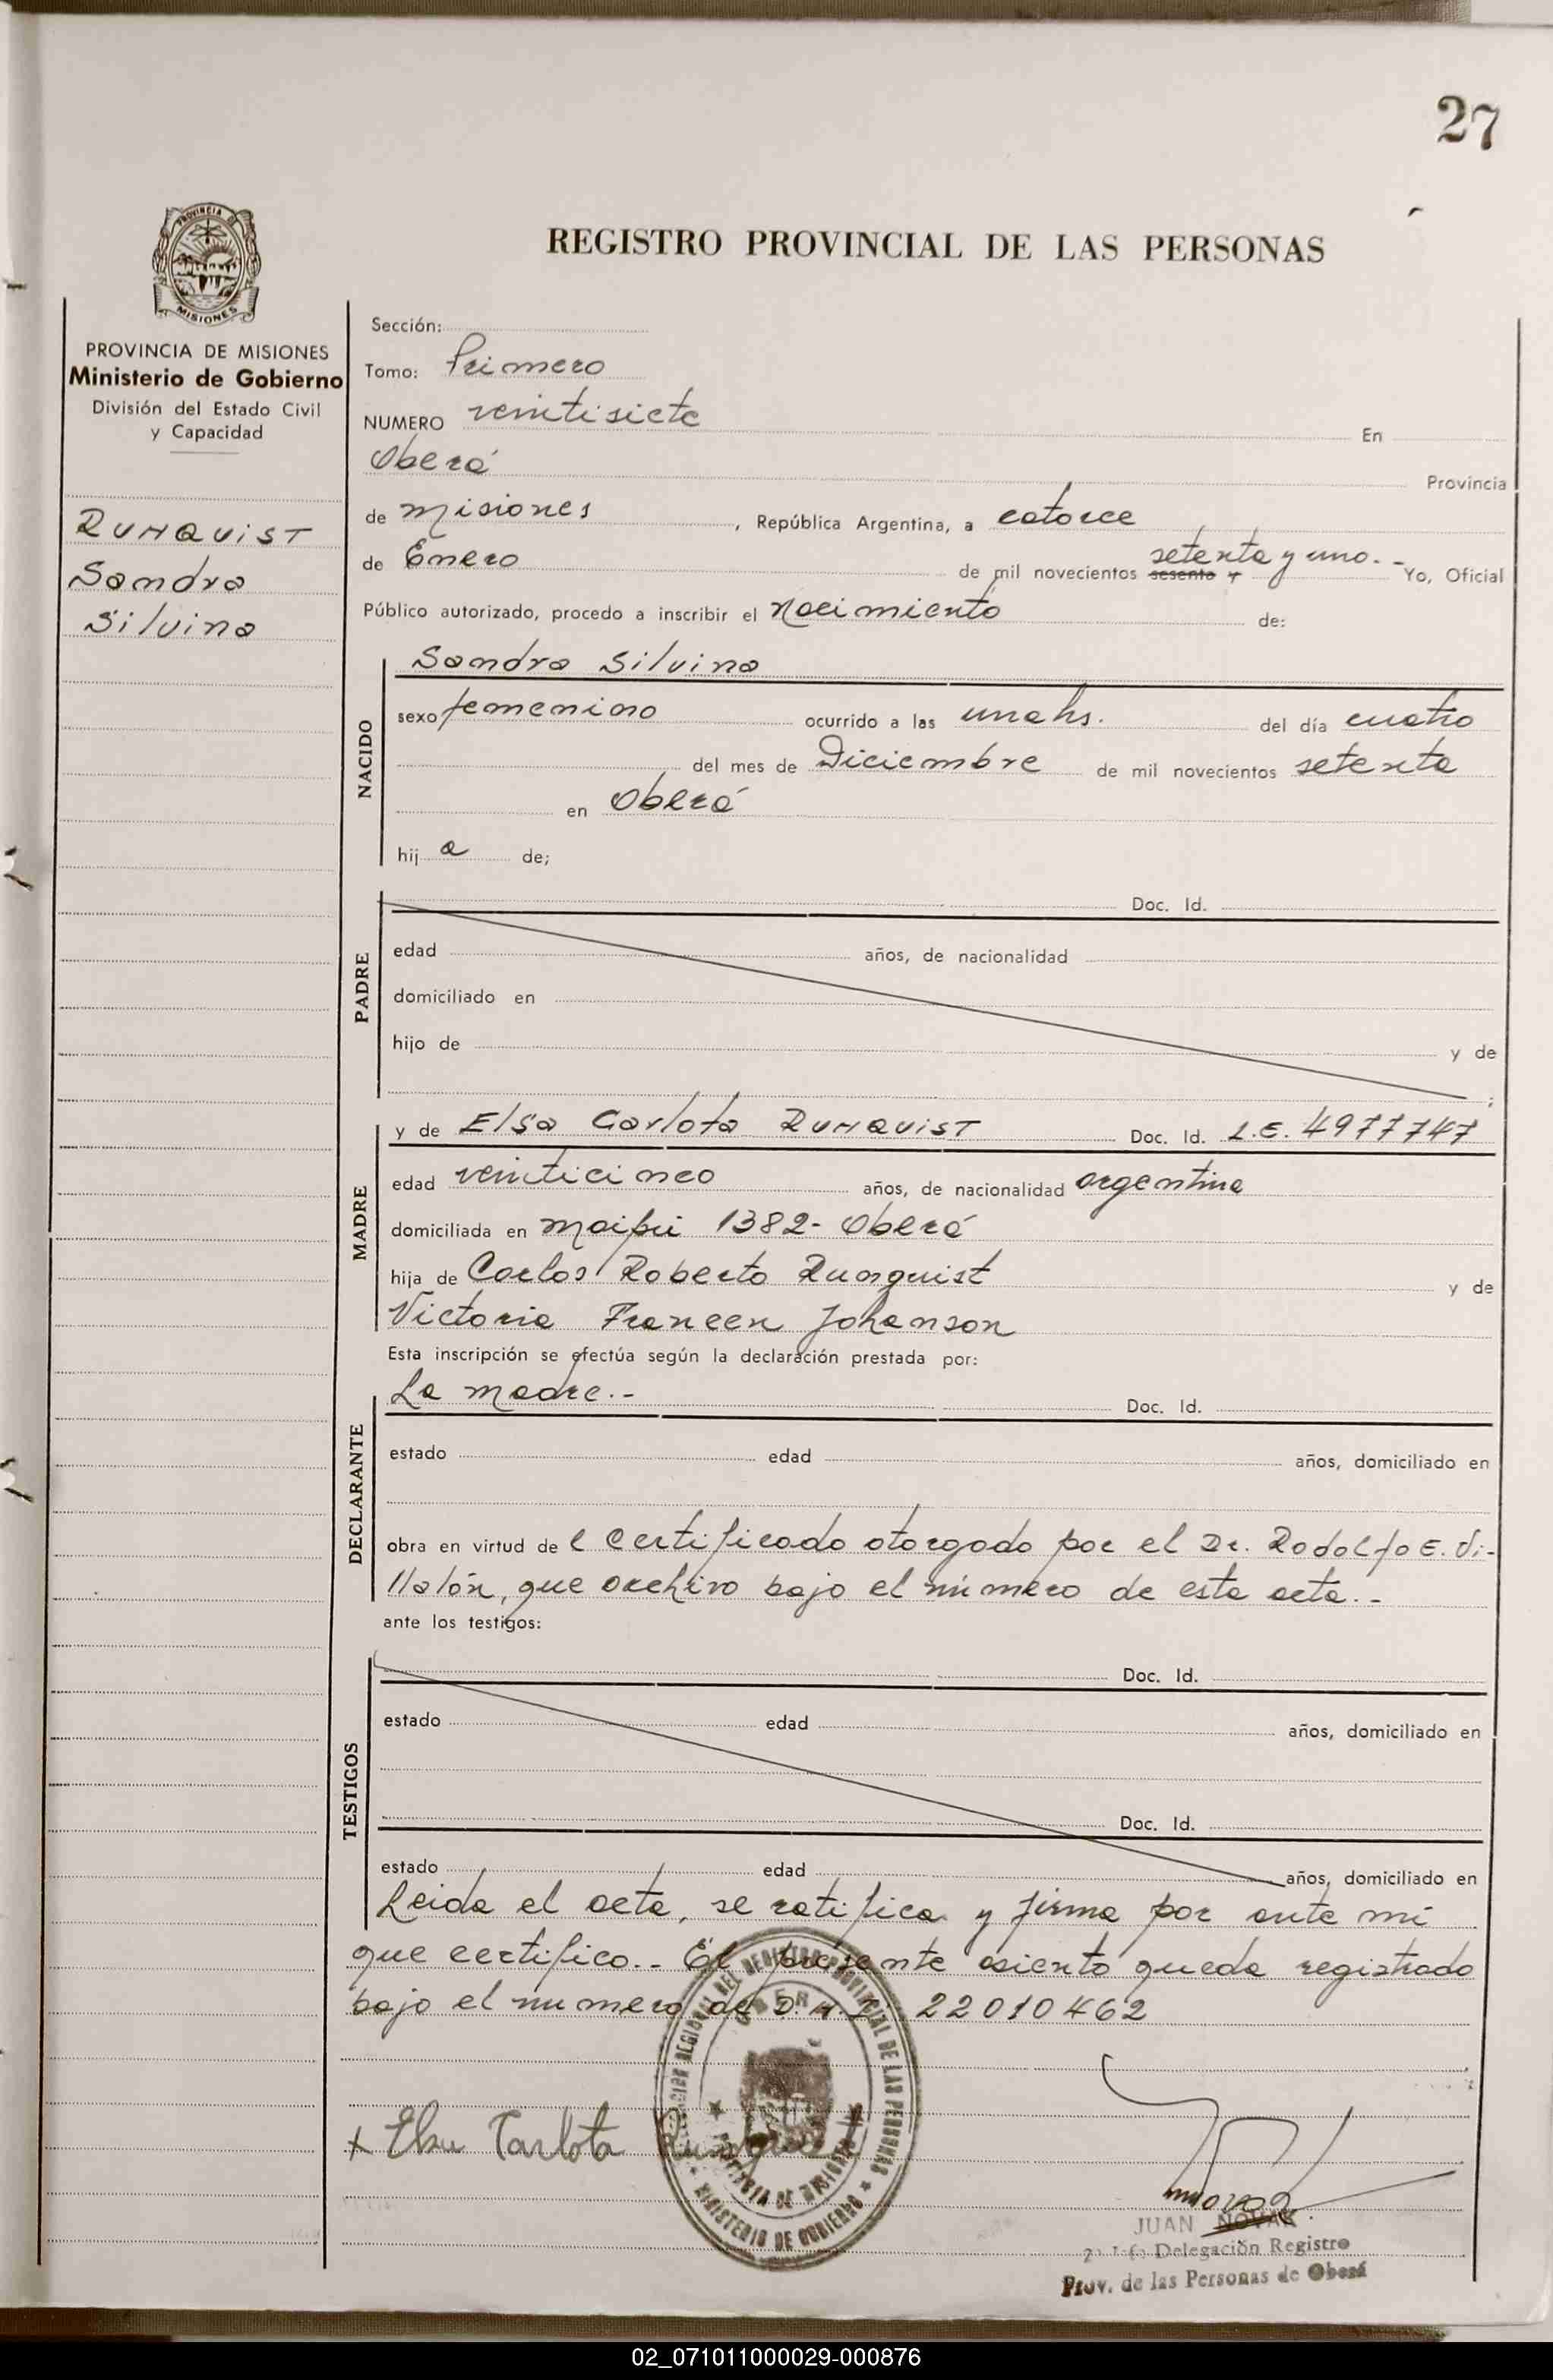 27
PROVINCIA DE
MISIONES
REGISTRO PROVINCIAL DE LAS PERSONAS
PROVINCIA DE MISIONES
Ministerio de Gobierno
División del Estado Civil
y Capacidad
RUNQUIST
Sandra
Silvina
Sección:
Tomo: Primero
NUMERO veintisiete En
Oberá Provincia
de Misiones, República Argentina, a catorce
de Enero de mil novecientos sesenta y setenta y uno.- Yo, Oficial
Público autorizado, procedo a inscribir el nacimiento de:
NACIDO
Sandra Silvina
sexo femenino ocurrido a las una hs. del día cuatro
del mes de Diciembre de mil novecientos setenta
en Oberá
hij a de;
PADRE
Doc. Id.
edad años, de nacionalidad
domiciliado en
hijo de y de
;
MADRE
y de Elsa Carlota RUNQUIST Doc. Id. L.E. 4977747
edad veinticinco años, de nacionalidad argentina
domiciliada en Maipú 1382- Oberá
hija de Carlos Roberto Runquist y de
Victoria Franeen Johanson
Esta inscripción se efectúa según la declaración prestada por:
DECLARANTE
La madre.-
Doc. Id.
estado edad años, domiciliado en
obra en virtud de l certificado otorgado por el Dr. Rodolfo E. Vi-
llalón, que archivo bajo el número de esta acta.-
ante los testigos:
TESTIGOS
Doc. Id.
estado edad años, domiciliado en
Doc. Id.
estado edad años, domiciliado en
Leida el acta, se ratifica y firma por ante mi
que certifico.- El presente asiento queda registrado
bajo el numero de D.N.I. 22010462
DELEGACION REGIONAL DEL REGISTRO PROVINCIAL DE LAS PERSONAS
OBERA
PROVINCIA DE MISIONES
MINISTERIO DE GOBIERNO
x Elsa Carlota Runquist
JUAN NOVAK
Delegación Registro
Prov. de las Personas de Oberá
02_071011000029-000876